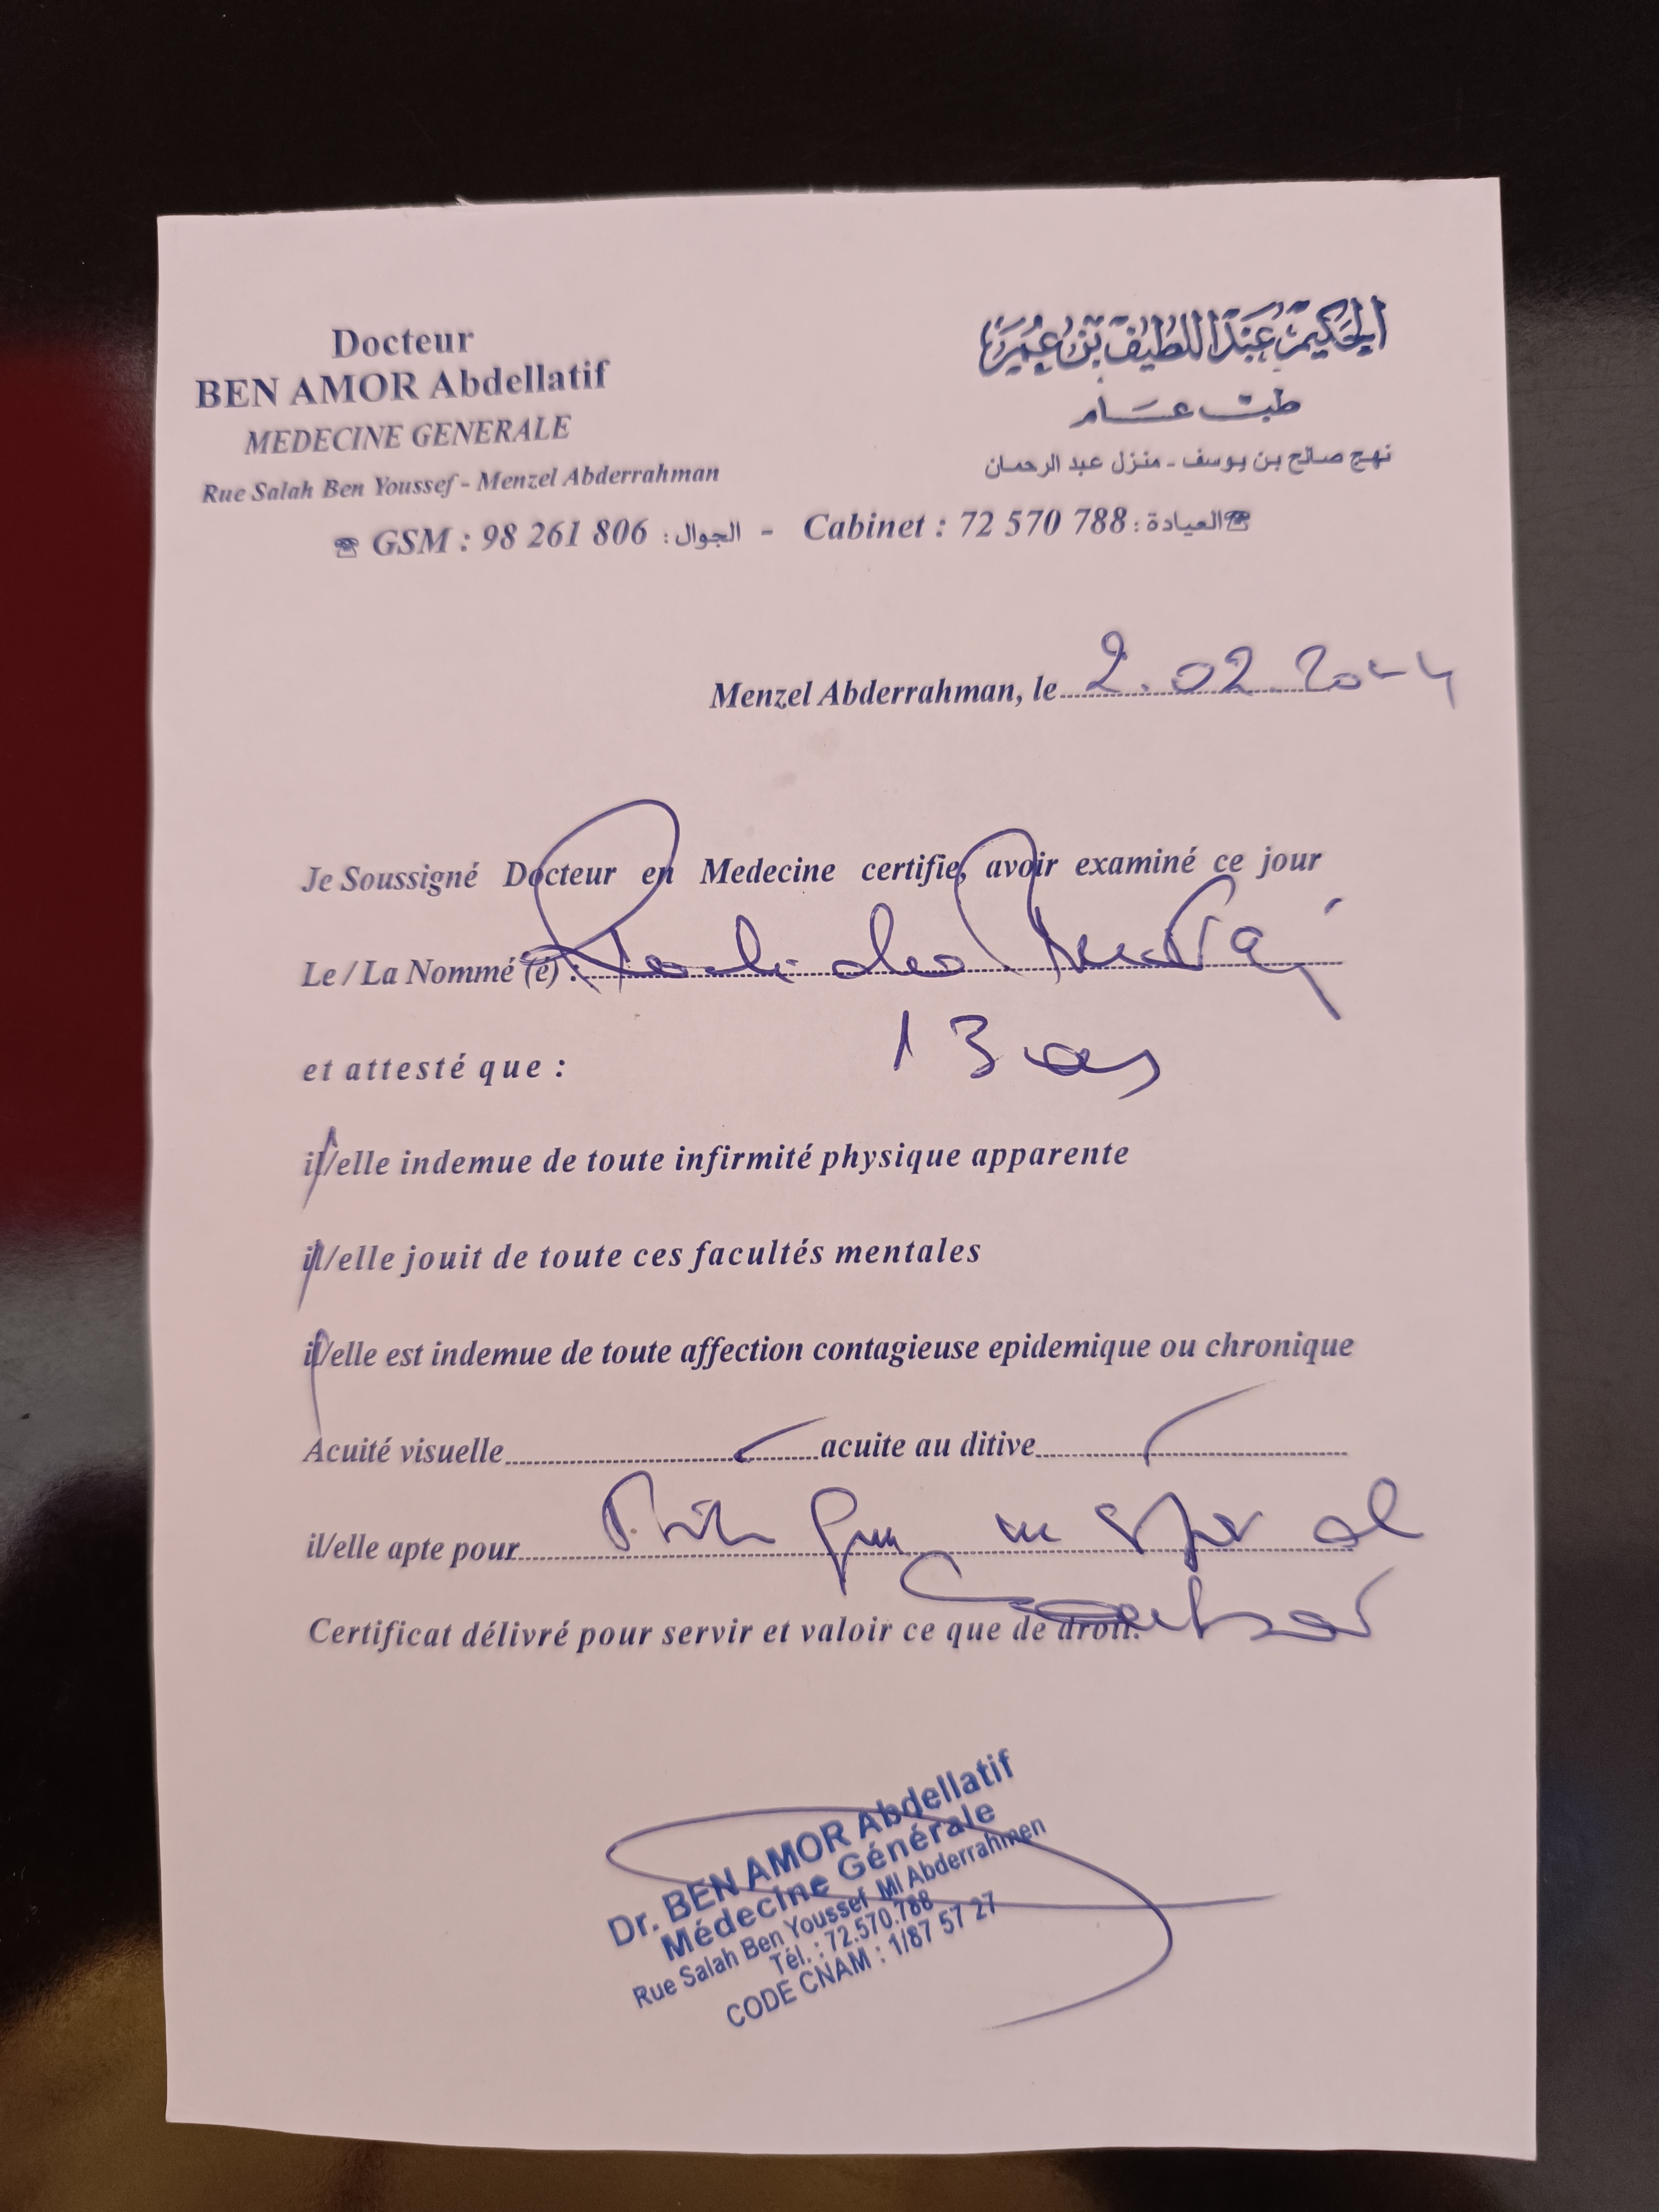 Docteur
BEN AMOR Abdellatif
MEDECINE GENERALE
Rue Salah Ben Youssef - Menzel Abderrahman
الحكيم عبد اللطيف بن عمر
طب عام
نهج صالح بن يوسف - منزل عبد الرحمان
GSM : 98 261 806 : الجوال - Cabinet : 72 570 788 : العيادة
Menzel Abderrahman, le 2.02.2024
Je Soussigné Docteur en Medecine certifie, avoir examiné ce jour
Le / La Nommé (é) :
13 ans
et attesté que :
il/elle indemue de toute infirmité physique apparente
il/elle jouit de toute ces facultés mentales
il/elle est indemue de toute affection contagieuse epidemique ou chronique
Acuité visuelle acuite au ditive
il/elle apte pour
Certificat délivré pour servir et valoir ce que de droit.
Dr. BEN AMOR Abdellatif
Médecine Générale
Rue Salah Ben Youssef Ml Abderrahmen
Tél. : 72.570.788
CODE CNAM : 1/87 57 27